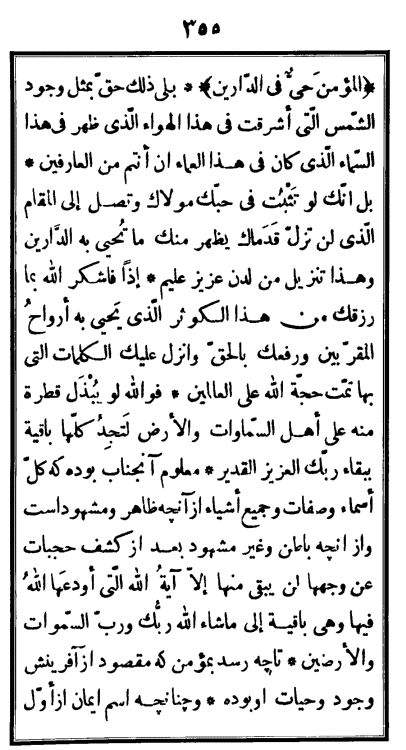 ٣٥٥
﴿المؤمن حيٌّ فی الدّارين﴾ * بلی ذلك حقّ بمثل وجود
الشّمس الّتی أشرقت فی هذا الهواء الّذی ظهر فی هذا
السّماء الّذی كان فی هذا العماء ان أنتم من العارفين *
بل انّك لو تَثْبُت فی حبّك مولاك وتصل إلی المقام
الّذی لن تزلّ قَدَماك يظهر منك ما تُحيی به الدَّارين
وهذا تنزيل من لدن عزيز عليم * إذًا فاشكر الله بما
رزقك من هذا الكوثر الّذی يَحيی به أرواحُ
المقرّبين ورفعك بالحقّ وانزل عليك الكلمات التی
بها تمّت حجّة الله علی العالمين * فوالله لو يُبْذَل قطرة
منه علی أهل السّماوات والأرض لَتجِدُ كلّها باقية
ببقاء ربّك العزيز القدير * معلوم آنجناب بوده كه كلّ
أسماء وصفات وجميع أشياء از آنچه ظاهر ومشهوداست
واز انچه باطن وغير مشهود بعد از كشف حجبات
عن وجهها لن يبقی منها إلاّ آيةُ الله الّتی أودعَها اللهُ
فيها وهی باقية إلی ماشاء الله ربُّك وربّ السّموات
والأرضين * تاچه رسد بمؤمن كه مقصود از آفرينش
وجود وحيات او بوده * وچنانچه اسم ايمان از أوّل